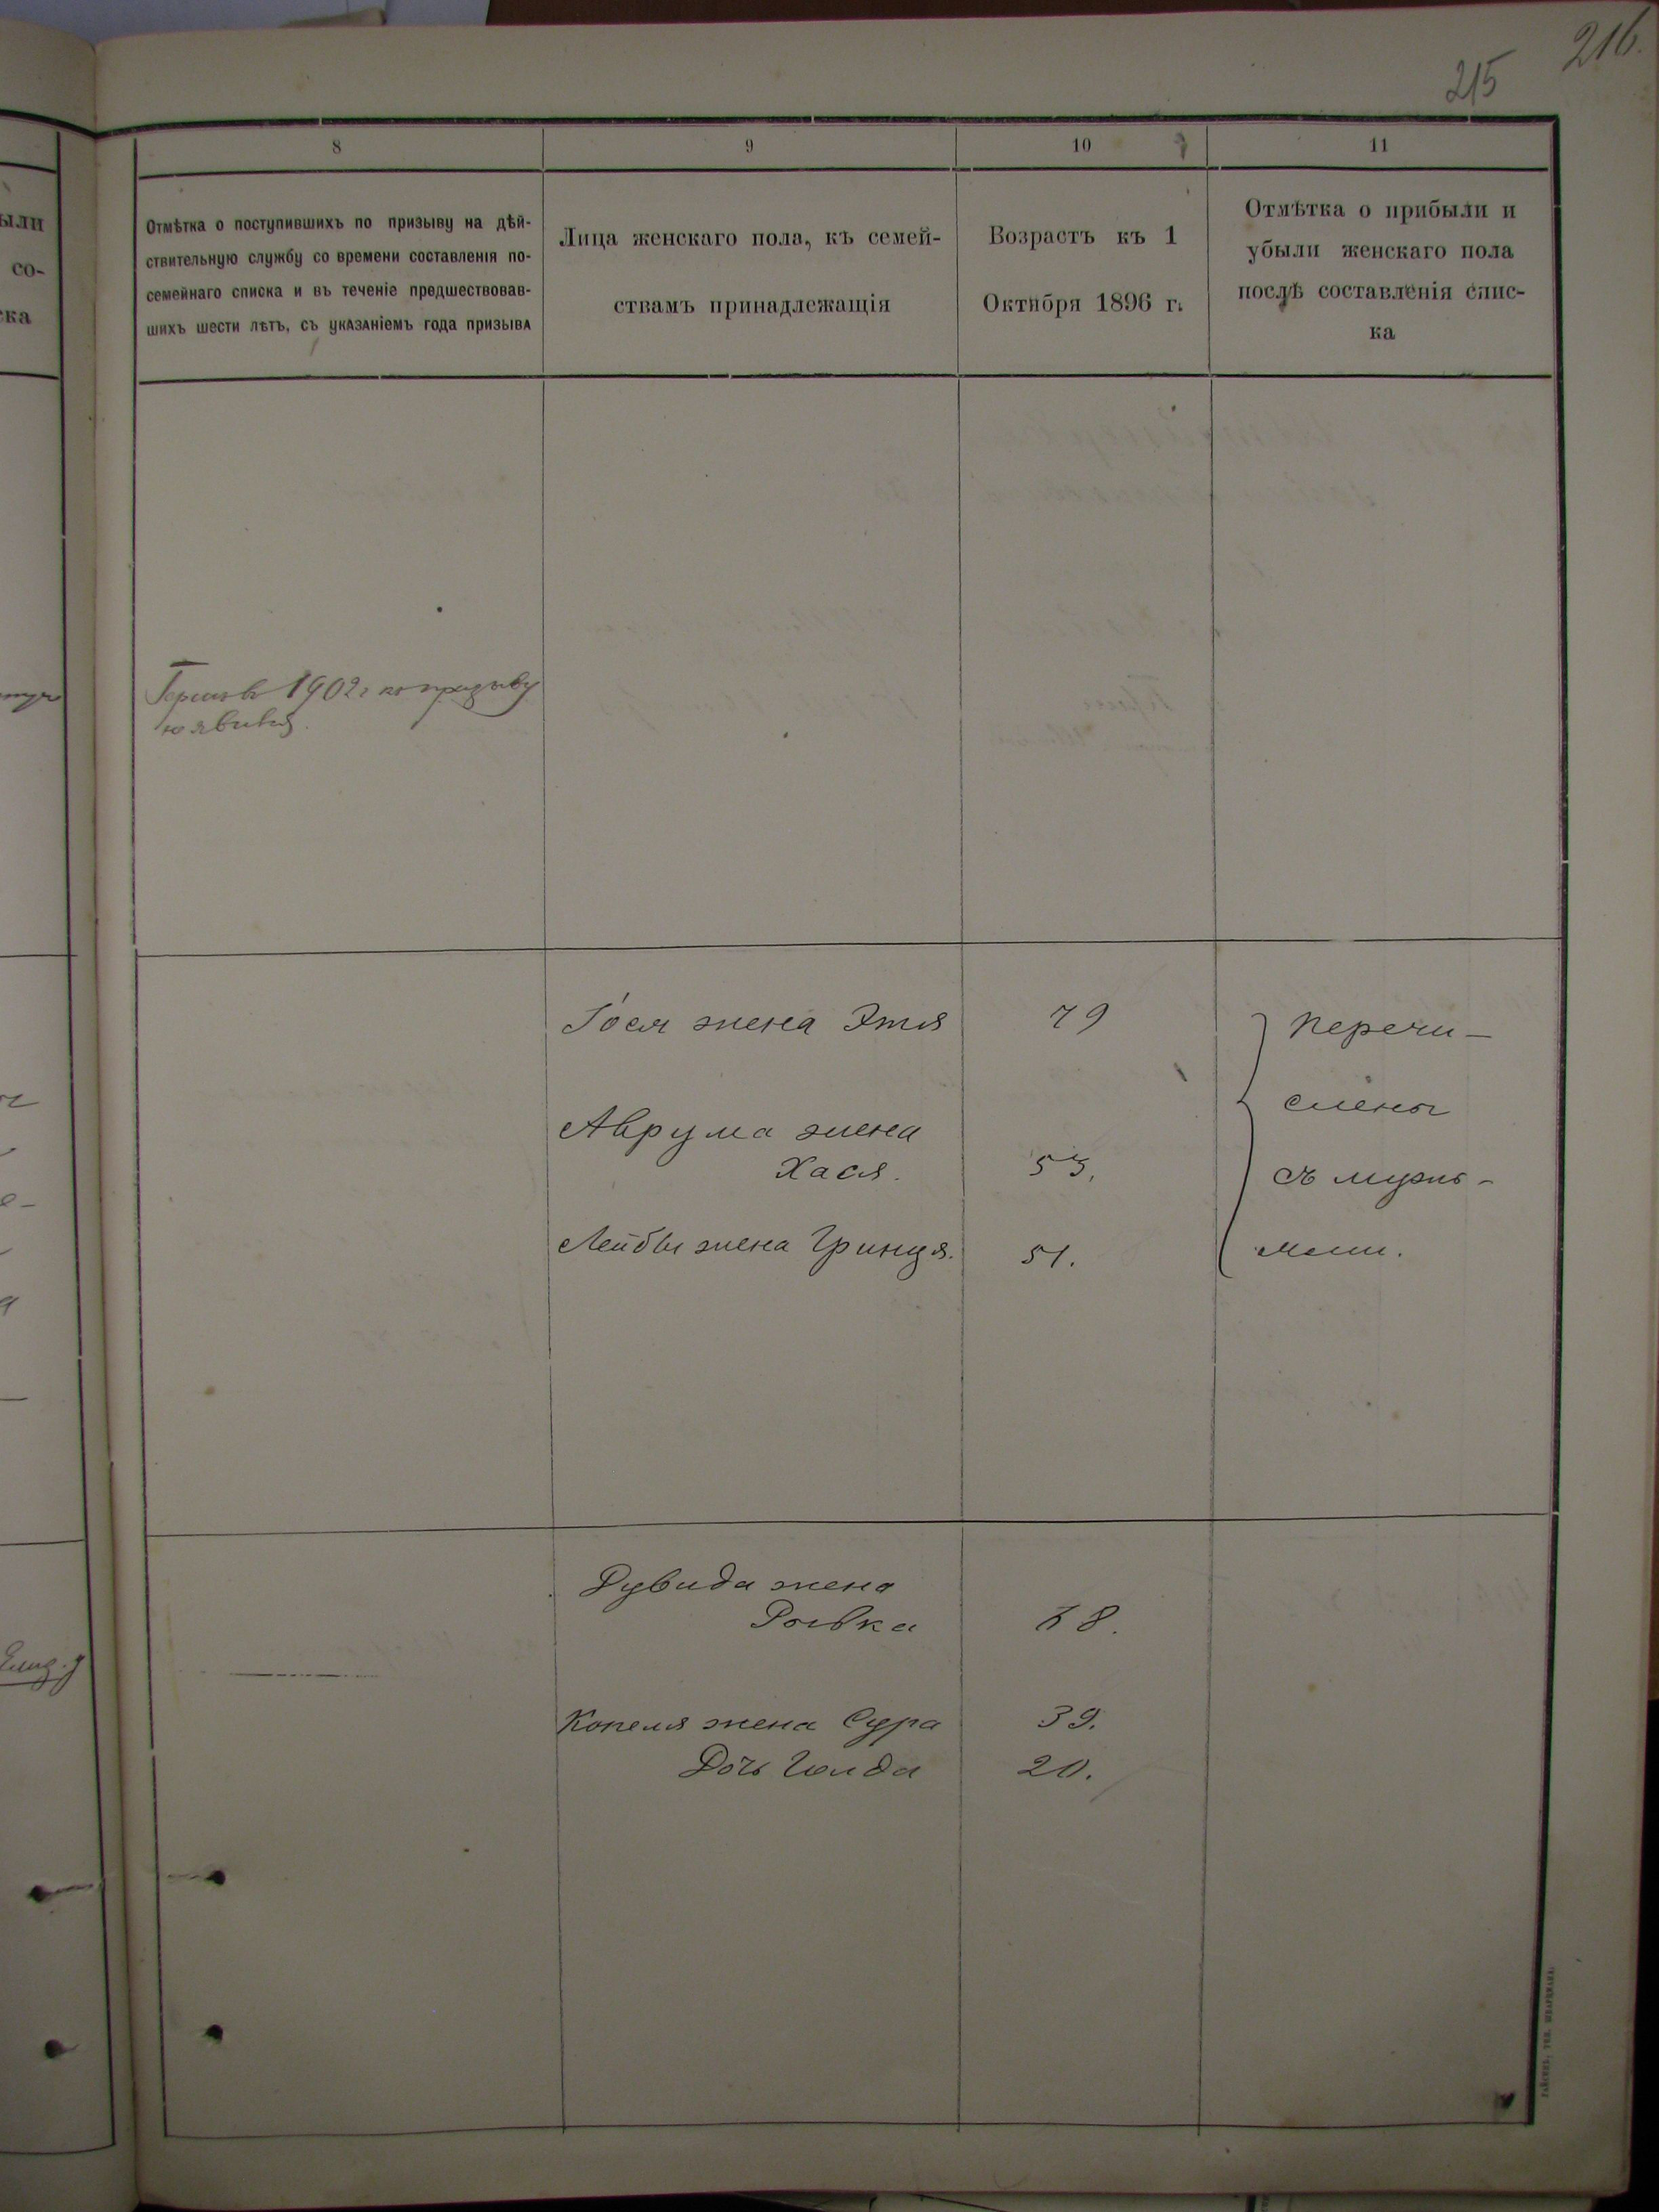 216.
215
8
9
10
11
Отмѣтка о поступившихъ по призыву на дѣй-
ствительную службу со времени составленія по-
семейнаго списка и въ теченіе предшествовав-
шихъ шести лѣтъ, съ указаніемъ года призыва
Лица женскаго пола, къ семей-
ствамъ принадлежащія
Возрастъ къ 1
Октября 1896 г.
Отмѣтка о прибыли и
убыли женскаго пола
послѣ составленія спис-
ка
ыли
со-
ска
1902 г по призыву
Іося жена Этя
79
Перечи-
слены
Аврума жена
Хася.
53.
съ мужь-
Лейбы жена Гринця.
51.
ями.
Дувида жена
Ровка
68.
Копеля жена Сура
39.
Дочь Голда
20.